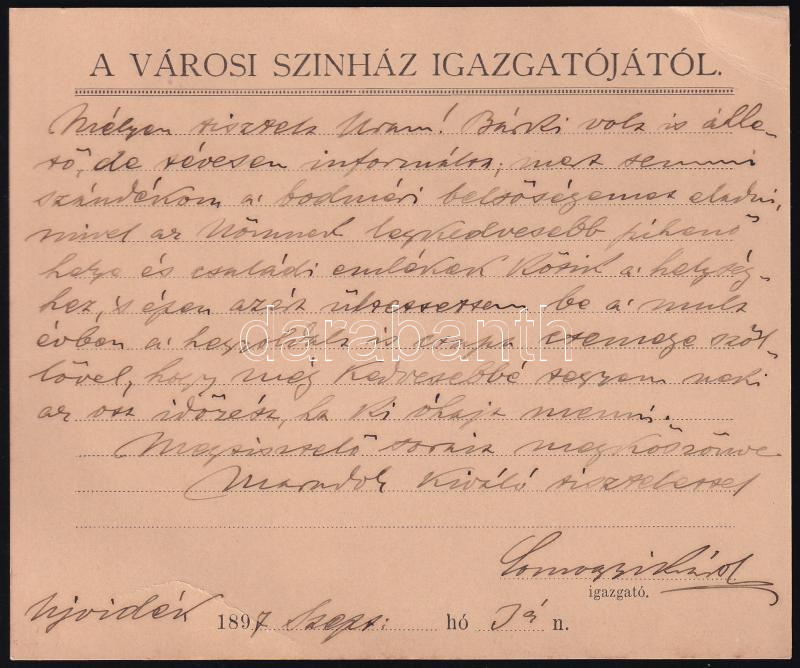 A VÁROSI SZINHÁZ IGAZGATÓJÁTÓL.
Mélyen tisztelt Uram! Bárki volt is álli-
tó, de tévesen informálta, mert semmi
szándékom a bodméri belsőségemet eladni,
mivel az Nőmnek legkedvesebb pihenő
helye és családi emlékek kötik a helység-
hez, s épen azért ültettettem be a mult
évben a hegyoldalt is csupa csemege szől-
lővel, hogy még kedvesebbé tegyem neki
az ott időzést, ha ki óhajt menni.
Megtisztelő sorait megköszönve
Maradok kiváló tisztelettel
Somogyi Károl
igazgató.
Ujvidék 1897 Szept: hó 3án n.
darabanth